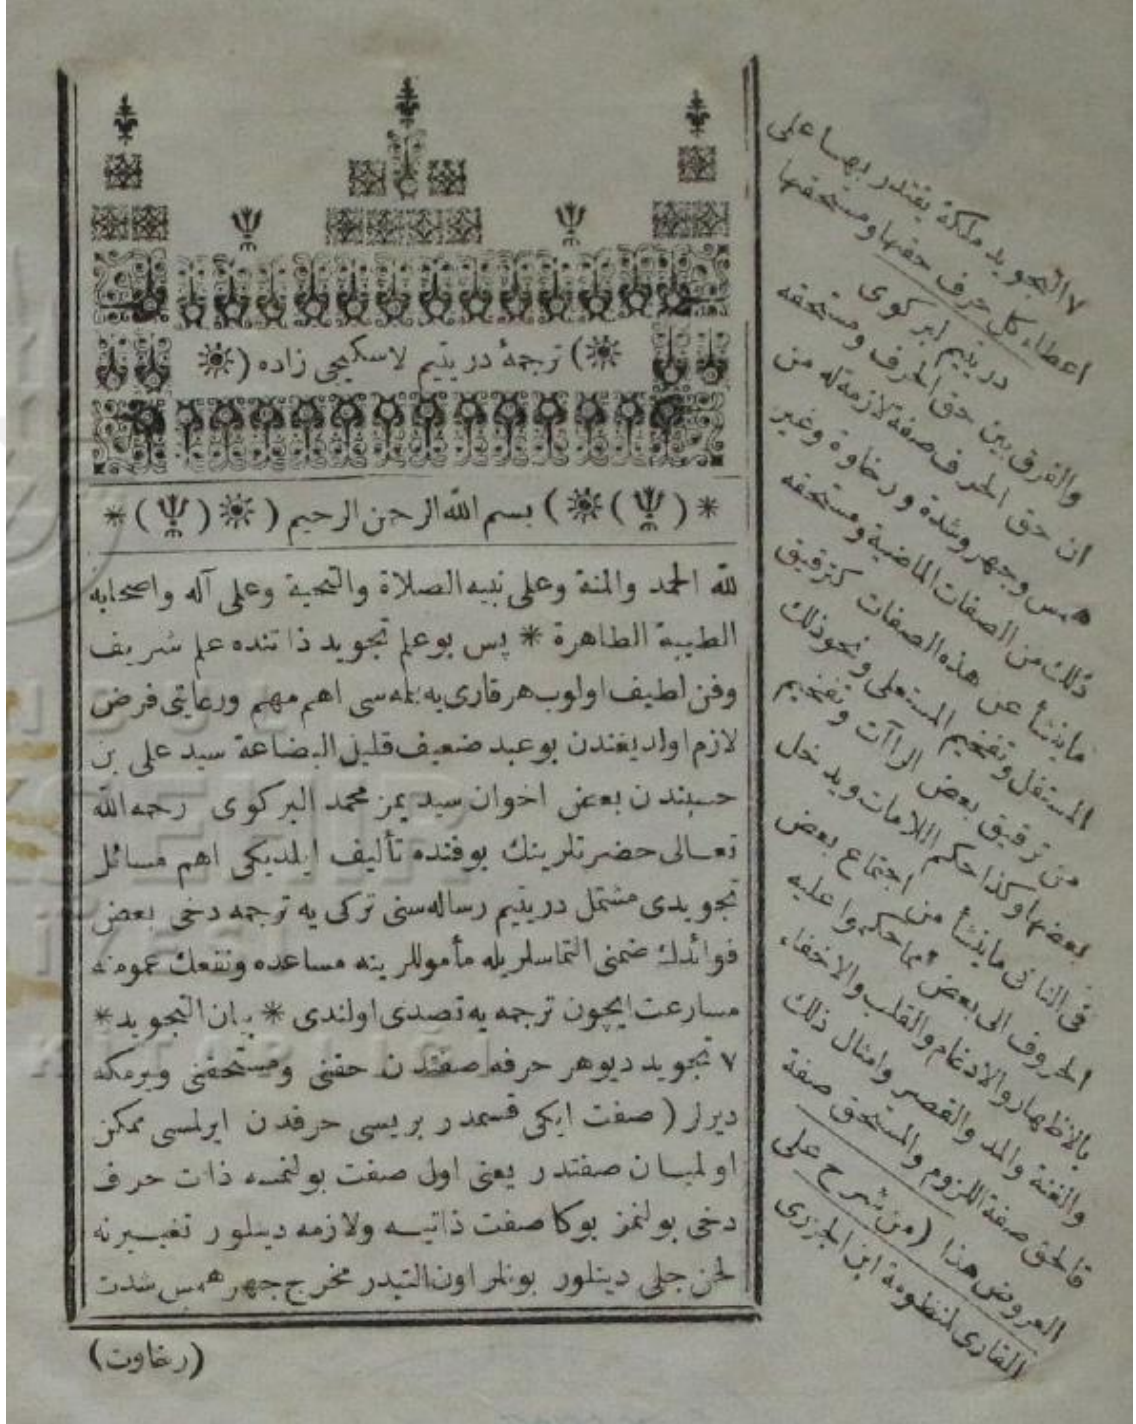 ترجمهٔ در يتيم لاسكيجى زاده
* ( ) بسم الله الرحمن الرحيم ( ) *
لله الحمد والمنة وعلى نبيه الصلاة والتحية وعلى آله واصحابه
الطيبة الطاهرة * پس بوعلم تجويد ذاتنده علم شريف
وفن لطيف اولوب هر قارى يه بلمه سى اهم مهم ورعايتى فرض
لازم اولديغندن بوعبد ضعيف قليل البضاعة سيد على بن
حسيندن بعض اخوان سيديمز محمد البركوى رحمه الله
تعالى حضرتلرينك بوفنده تأليف ايلديكى اهم مسائل
تجويدى مشتمل در يتيم رساله سنى تركى يه ترجمه دخى بعض
فوائدك ضمنى التماسلريله مأموللرينه مساعده ونفعك عمومنه
مسارعت ايچون ترجمه يه تصدى اولندى * بيان التجويد *
٧ تجويد ديو هر حرفه صفتدن حقنى ومستحقنى ويرمكه
ديرلر ( صفت ايكى قسمدر بريسى حرفدن ايرلمسى ممكن
اولميان صفتدر يعنى اول صفت بولنمسه ذات حرف
دخى بولنمز بوكا صفت ذاتيه ولازمه دينلور تغييرنه
لحن جلى دينلور بونلر اون التيدر مخرج جهر همس شدت
(رخاوت)
٧ التجويد ملكة يقتدر بها على
اعطاء كل حرف حقها ومستحقها
در يتيم لبركوى
والفرق بين حق الحرف ومستحقه
ان حق الحرف صفة لازمة له من
همس وجهر وشدة ورخاوة وغير
ذلك من الصفات الماضية ومستحقه
ما ينشأ عن هذه الصفات كترقيق
المستفل وتفخيم المستعلى ونحو ذلك
من ترقيق بعض الراآت وتفخيم
بعضها وكذا حكم اللامات ويدخل
فى الثانى ما ينشأ من اجتماع بعض
الحروف الى بعض مما حكموا عليه
بالاظهار والادغام والقلب والاخفاء
والغنة والمد والقصر وامثال ذلك
فالحق صفة اللزوم والمستحق صفة
العروض هذا (من شرح على
القارى لمنظومة ابن الجزرى